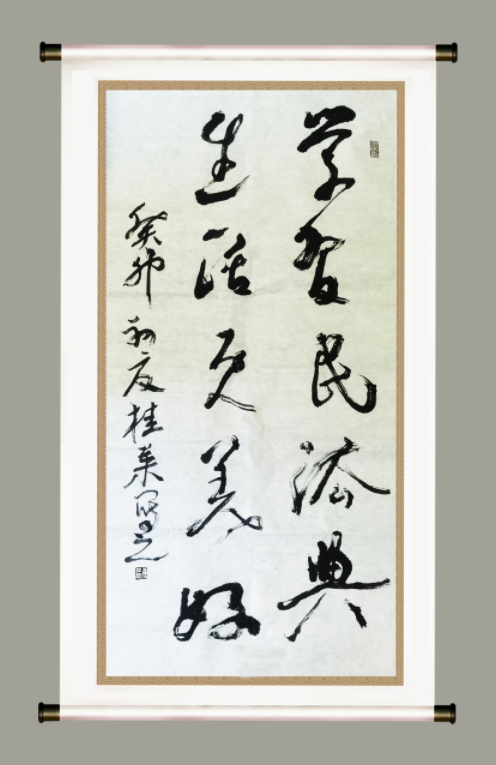 学习民法典
生活更美好
癸卯初夏桂荣写之